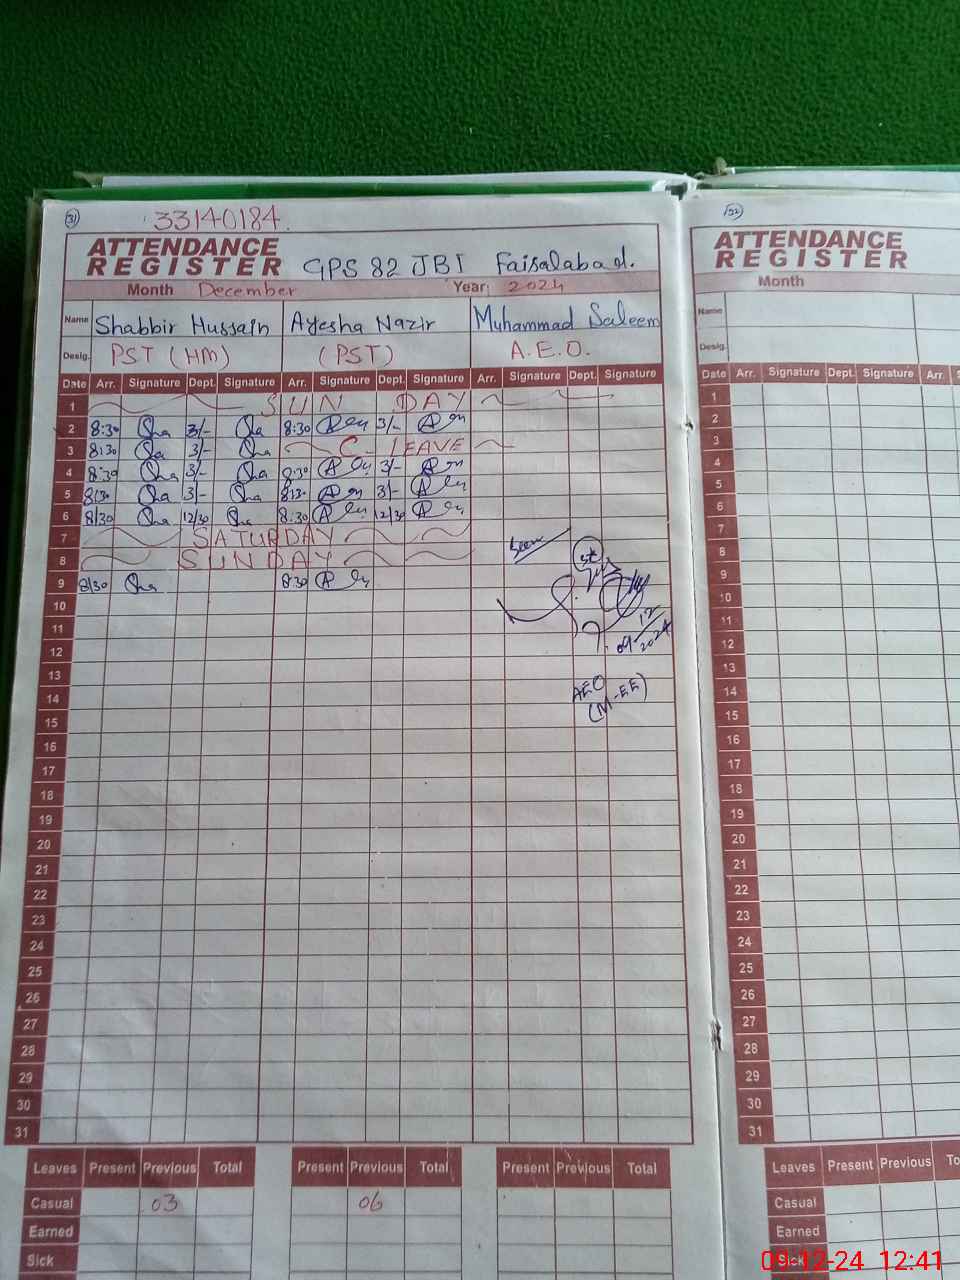 31 33140184. 32
ATTENDANCE
REGISTER GPS 82 JBI Faisalabad.
Month December Year: 2024
Name Shabbir Hussain Ayesha Nazir Muhammad Saleem
Desig. PST (HM) (PST) A.E.O.
Date Arr. Signature Dept. Signature Arr. Signature Dept. Signature Arr. Signature Dept. Signature
1 SUNDAY
2 8:30 Sha 3/- Sha 8:30 3/-
3 8:30 Sha 3/- Sha C. LEAVE
4 8:30 Sha 3/- Sha 8:30 3/-
5 8:30 Sha 3/- Sha 8:30 3/-
6 8:30 Sha 12/30 Sha 8:30 12/30
7 SATURDAY
8 SUNDAY
9 8:30 Sha 8:30
10
11
12
13
14
15
16
17
18
19
20
21
22
23
24
25
26
27
28
29
30
31
Seen
09 12 2024
AEO
(M-EE)
Leaves Present Previous Total Present Previous Total Present Previous Total
Casual 03 06
Earned
Sick
ATTENDANCE
REGISTER
Month
Name
Desig.
Date Arr. Signature Dept. Signature Arr.
1
2
3
4
5
6
7
8
9
10
11
12
13
14
15
16
17
18
19
20
21
22
23
24
25
26
27
28
29
30
31
Leaves Present Previous To
Casual
Earned
Sick
09-12-24 12:41